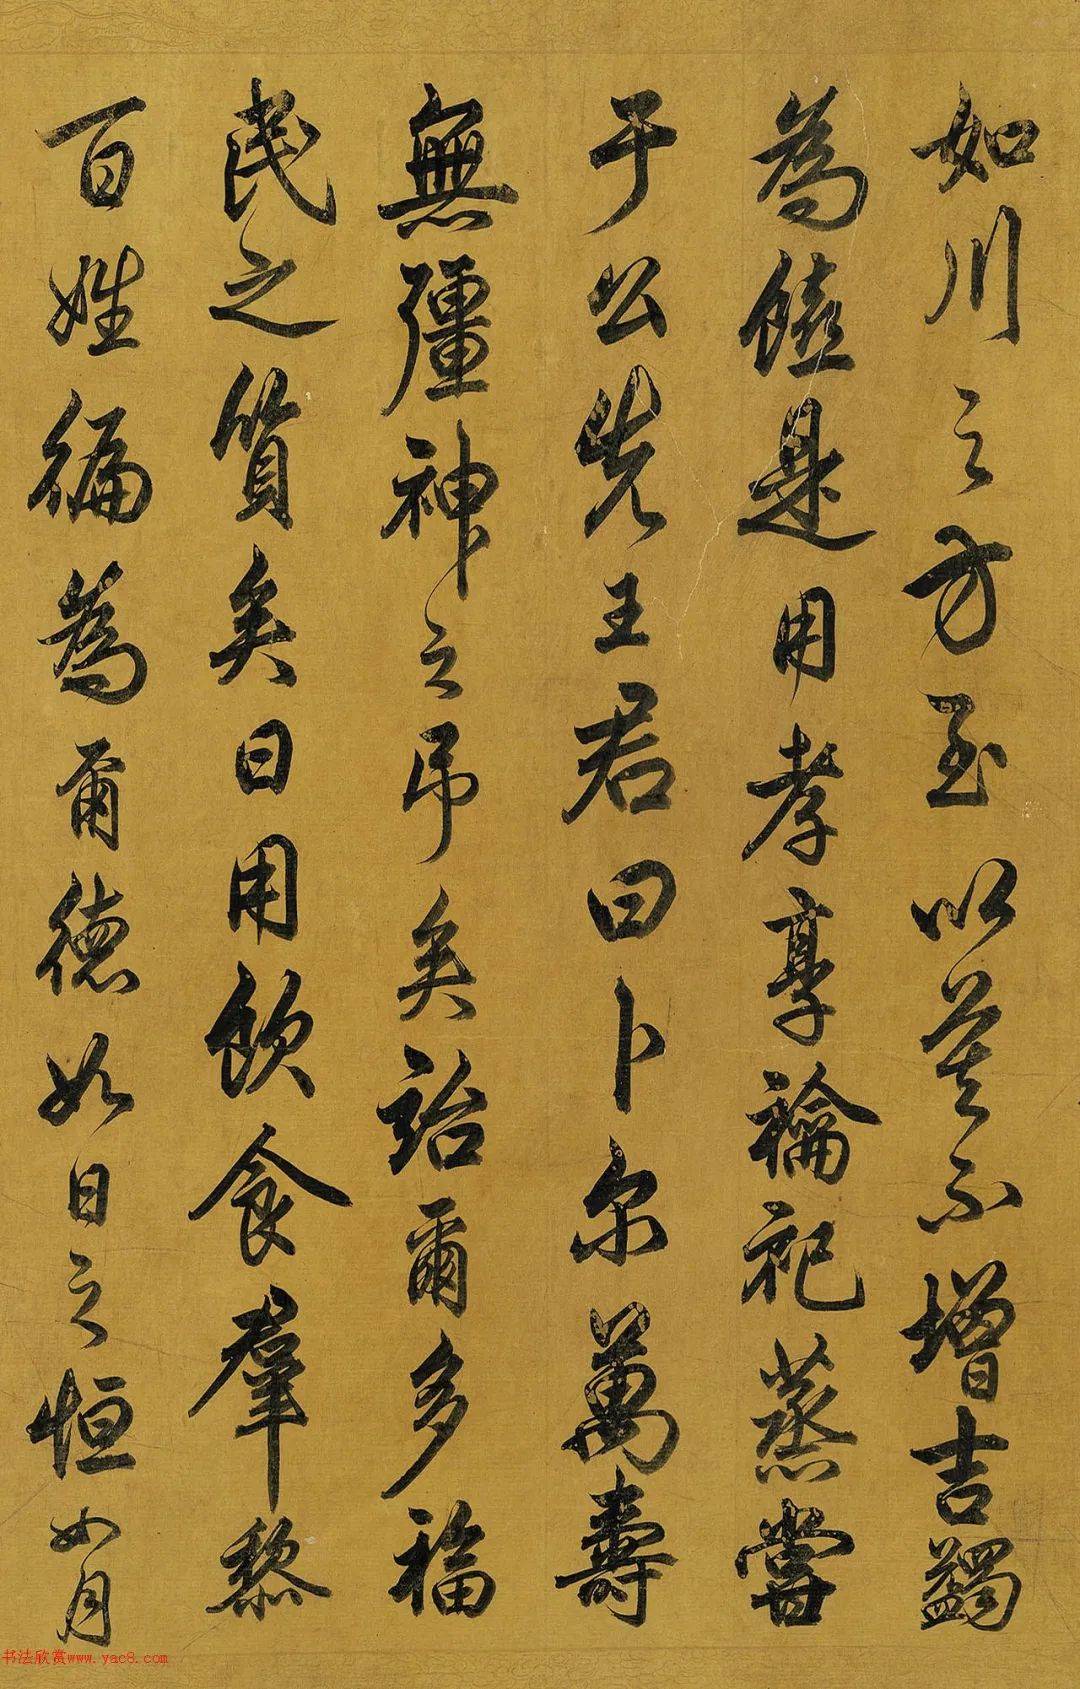 如川之方至以莫不增吉蠲
為饎是用孝享禴祀蒸嘗
于公先王君曰卜尔萬壽
無彊神之吊矣詒爾多福
民之質矣日用飲食羣黎
百姓徧為爾德如日之恒如月
书法欣赏www.yac8.com